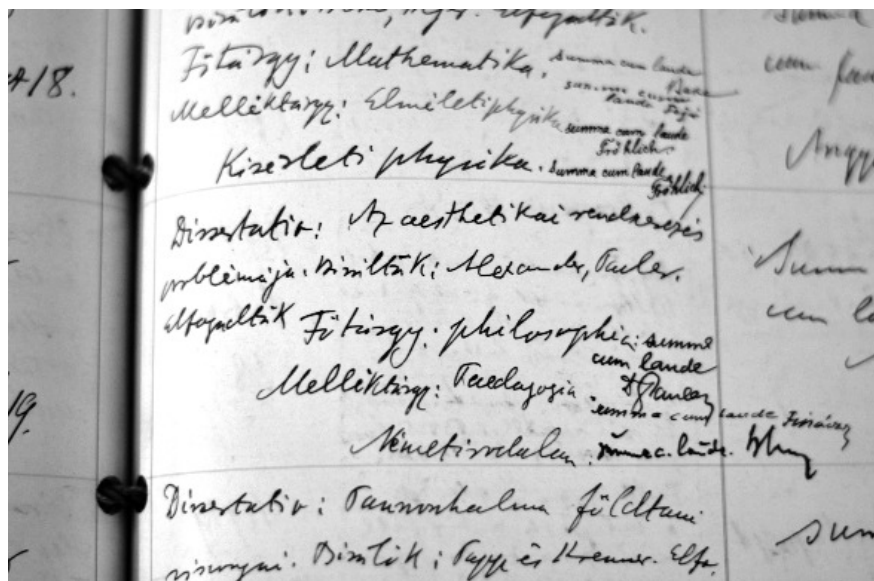 Elfogadták.
18.
Főtárgy: Mathematika. summa cum laude
summa cum laude Fejér
Melléktárgy: Elméleti physika summa cum laude Fröhlich.
Kisérleti physika. summa cum laude Fröhlich
Dissertatio: Az aesthetikai rendszerezés
problémája. Birálták: Alexander, Pauler.
Elfogadták Főtárgy: philosophia: summa
cum laude
Melléktárgy: Paedagogia Dr Pauler
summa cum laude Fináczy
19.
Németirodalom: summa c. laude.
Dissertatio: Pannonhalma földtani
viszonyai. Birálták: Papp és Krenner. Elfo
cum
Summ
cum la
Sum